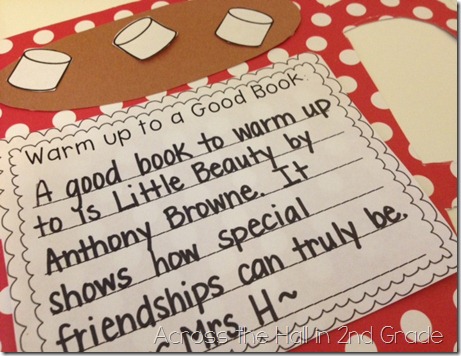 Warm up to a Good Book
A good book to warm up
to is Little Beauty by
Anthony Browne. It
shows how special
friendships can truly be.
~ Mrs H~
Across the Hall in 2nd Grade